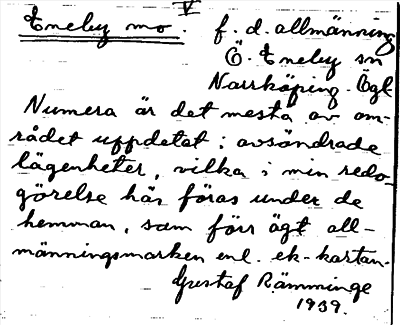 V
Eneby mo. f. d. allmänning
Ö. Eneby sn
Norrköping. Ögl
Numera är det mesta av om-
rådet uppdelat i avsöndrade
lägenheter, vilka i min redo-
görelse här föras under de
hemman, som förr ägt all-
männingsmarken enl. ek-kartan.
Gustaf Rämminge
1939.